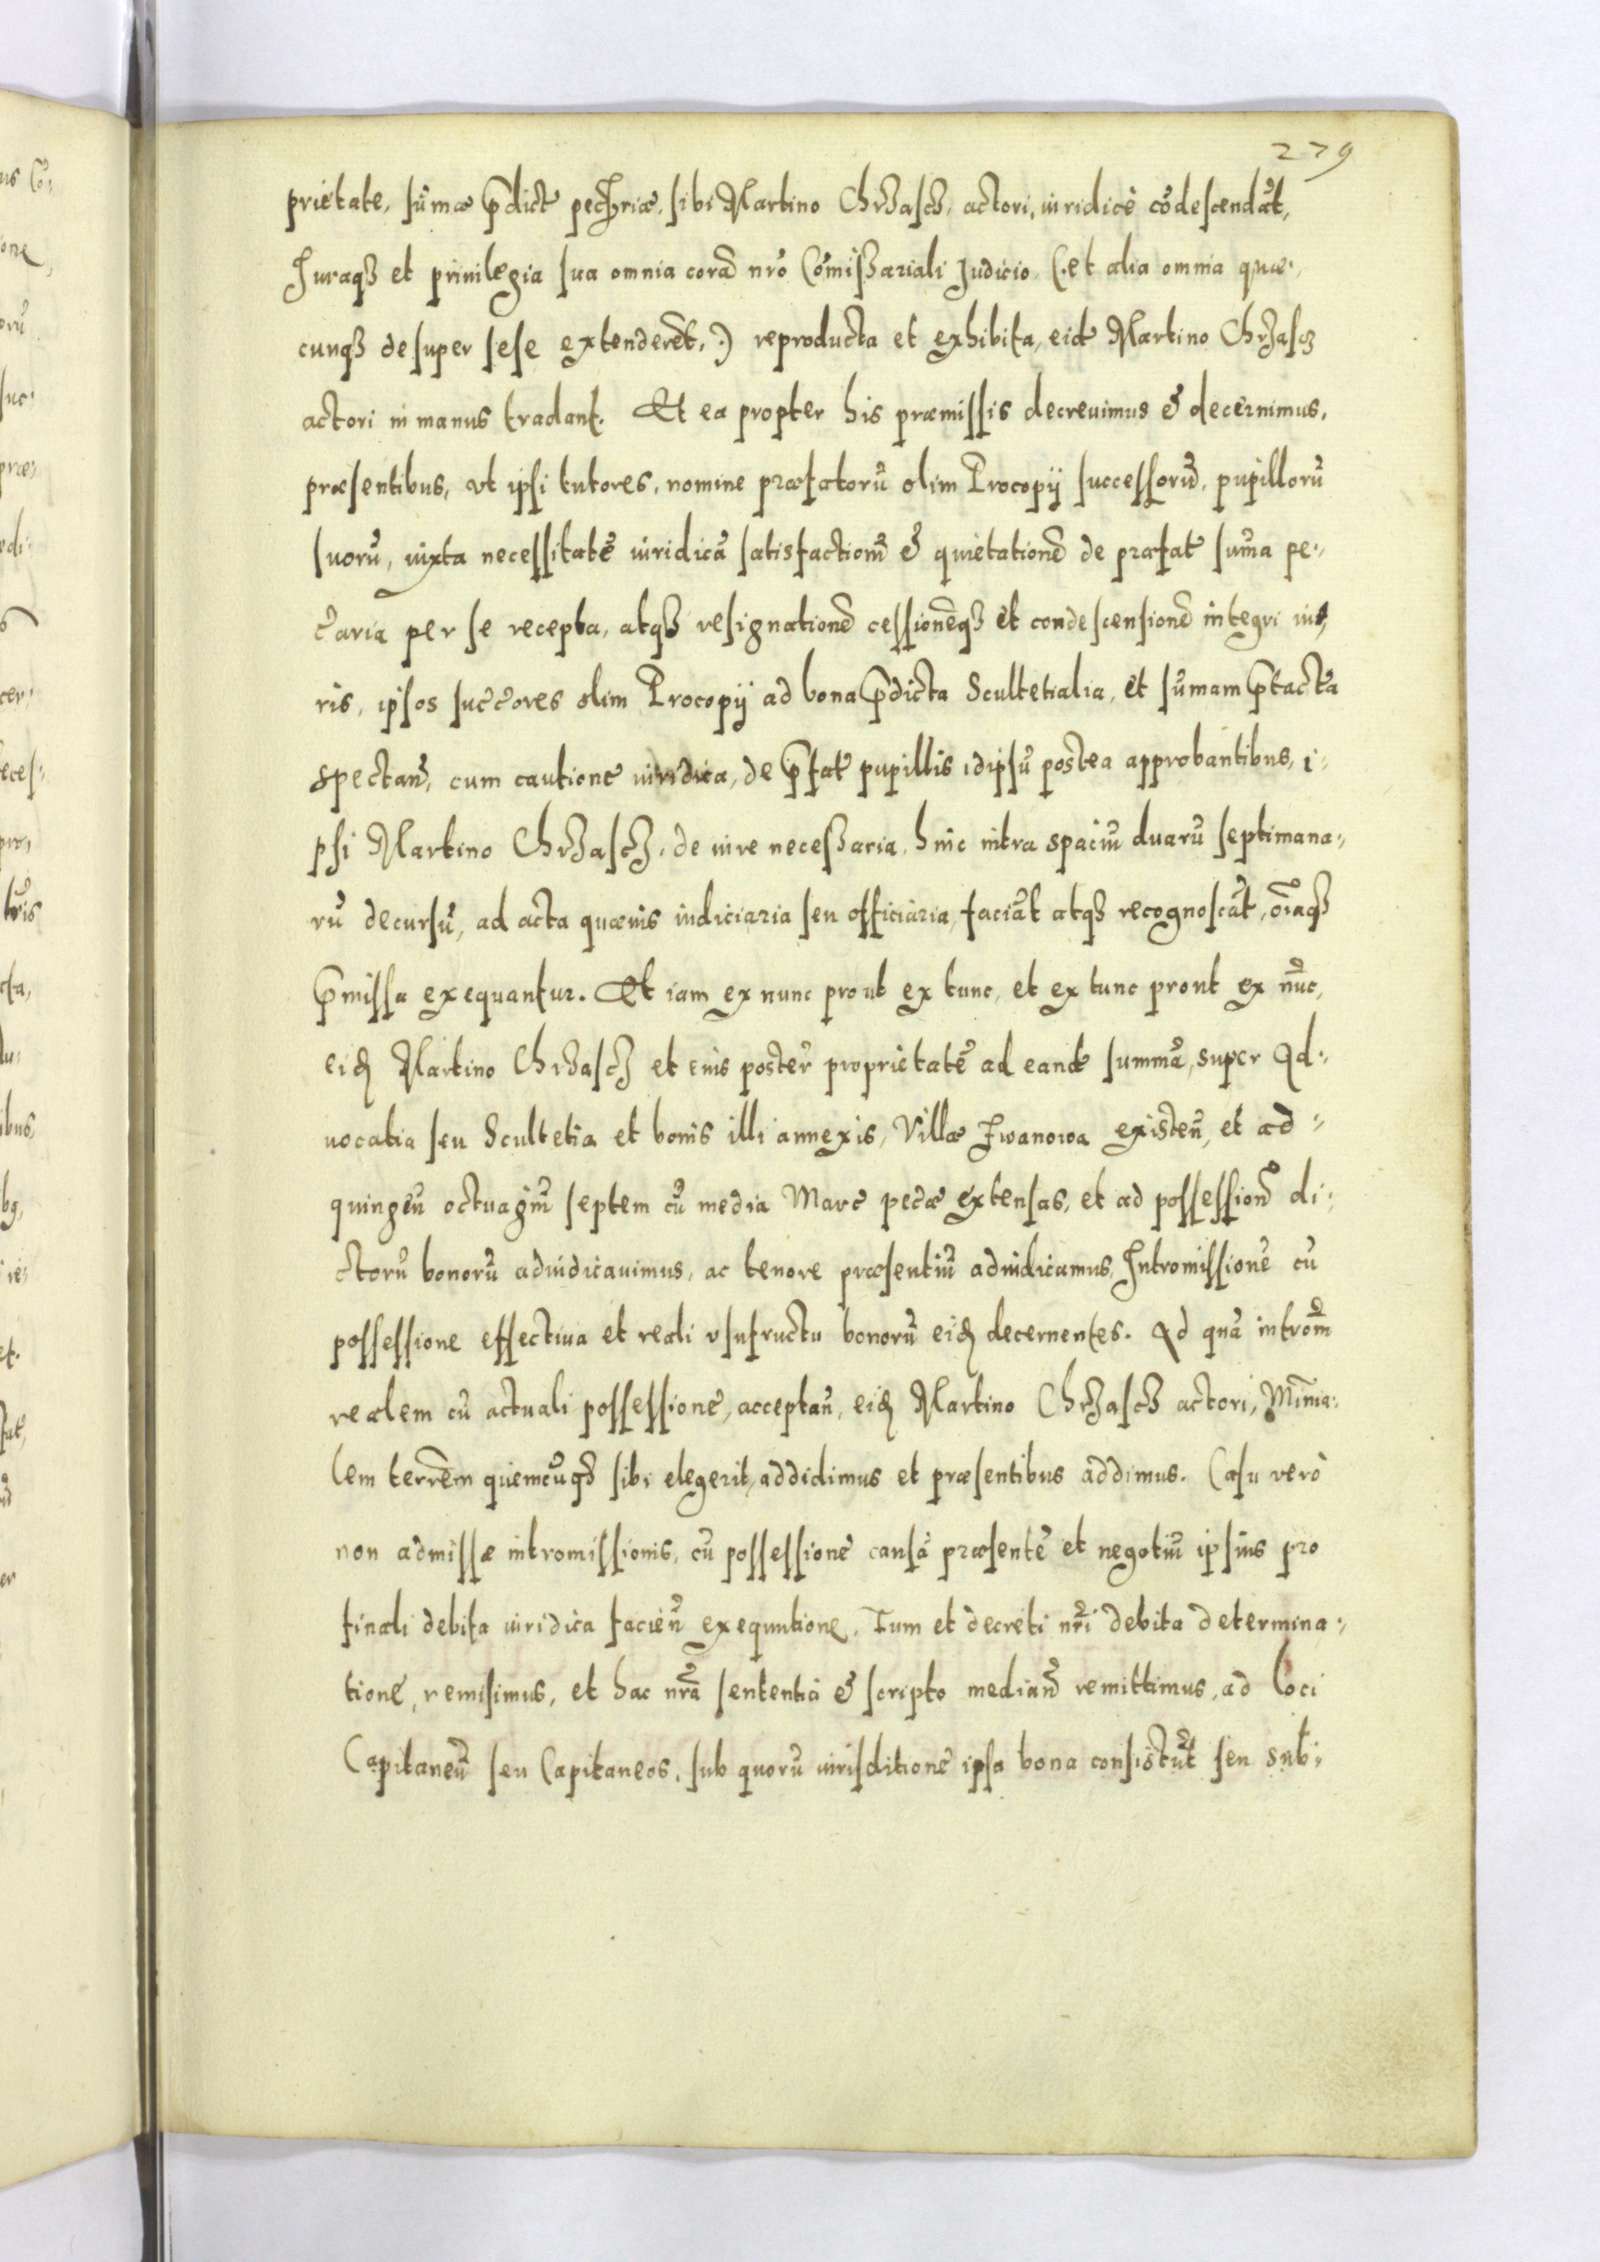 279
prietate, sūmæ p̄dict pecḩriæ, sibi Martino Chrząscz, actori, iuridicè cōdescendāt,
Juraqȝ et priuilegia sua omnia corā nrō Cōmissariali Judicio, (:et alia omnia quæ-
cunqȝ desuper sese extenderēt,:) reproducta et exhibita, eid Martino Chrząscz
actori in manus tradant. Et ea propter his præmissis decreuimus & decernimus,
præsentibus, vt ipsi tutores, nomine præfatorū olim Procopij successorū, pupillorū
suorū, iuxta necessitatē iuridicā satisfactionē & quietationē de præfat sūma pe-
c̄aria per se recepta, atqȝ resignationē cessionēqȝ et condescensionē integri iu-
ris, ipsos succ̄ores olim Procopij ad bona p̄dicta Scultetialia, et sūmam p̄tactā
spectan̄, cum cautione iuridica, de p̄fat pupillis idipsū postea approbantibus, i-
psi Martino Chrząscz, de iure necessaria, hinc intra spaciū duarū septimana-
rū decursū, ad acta quæuis iudiciaria seu officiaria, faciāt atqȝ recognoscāt, oīaqȝ
p̄missa exequantur. Et iam ex nunc prout ex tunc, et ex tunc prout ex nūc,
eidȝ Martino Chrząscz et eius poster proprietatē ad eand summā, super Ad-
uocatia seu Scultetia et bonis illi annexis, Villæ Iwanowa existen̄, et ad
quingen̄ octuagīn̄ septem cū media Marc pec̄æ extensas, et ad possessionē di-
ctorū bonorū adiudicauimus, ac tenore præsentiū adiudicamus, Intromissionē cū
possessione effectiua et reali vsufructu bonorū eidȝ decernentes. Ad quā introm̄
realem cū actuali possessione, acceptan̄, eidȝ Martino Chrząscz actori, Mīnia-
lem terrēm quemcūqȝ sibi elegerit, addidimus et præsentibus addimus. Casu verò
non admissæ intromissionis, cū possessione causā præsentē et negotiū ipsius pro
finali debita iuridica facien̄ exequutione, Tum et decreti nr̄i debita determina-
tione, remisimus, et hac nrā sententia & scripto median̄ remittimus, ad loci
Capitaneū seu Capitaneos, sub quorū iurisditione ipsa bona consistūt seu subi-